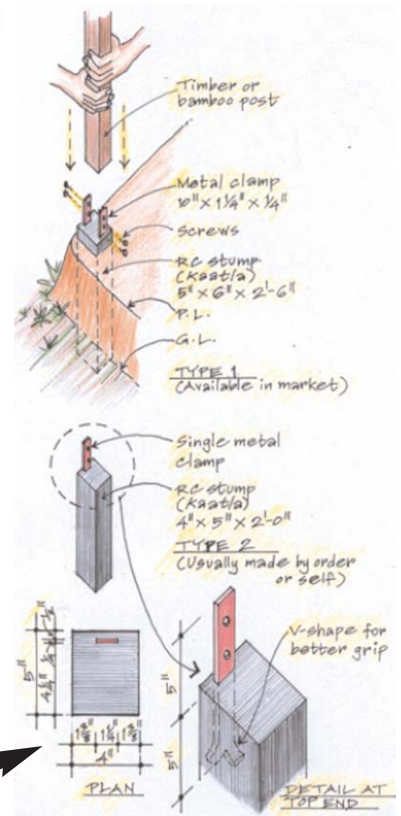 Timber or
bamboo post
Metal clamp
10" x 1¼" x ¼"
Screws
RC stump
(Kaat/a)
5" x 6" x 2'-6"
P.L.
G.L.
TYPE 1
(Available in market)
Single metal
clamp
RC stump
(Kaat/a)
4" x 5" x 2'-0"
TYPE 2
(Usually made by order
or self)
V-shape for
better grip
5"
5"
5"
1¼"
4"
PLAN
DETAIL AT
TOP END